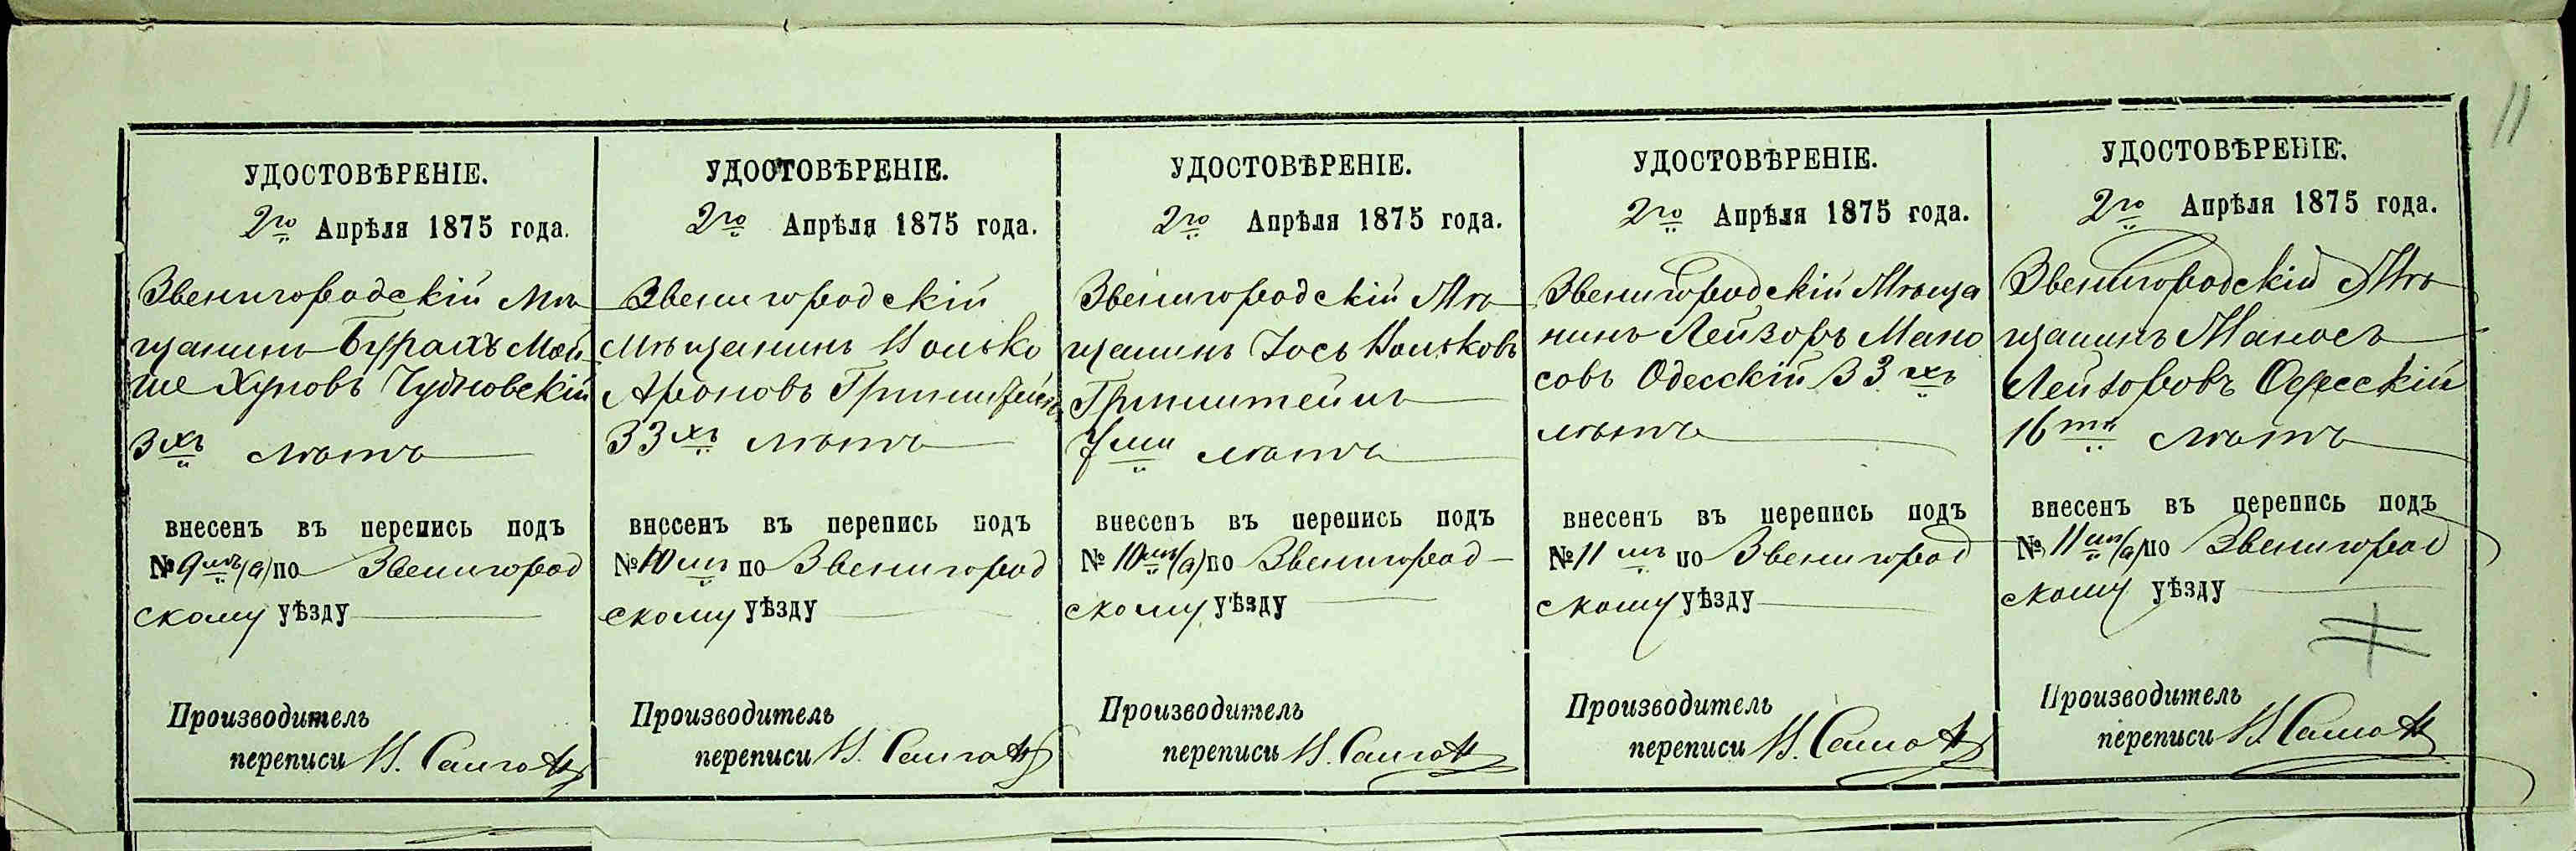 11
УДОСТОВѢРЕНІЕ.
2го Апрѣля 1875 года.
Звенигородскій Мѣ
щанинъ Бурахъ Мой
ше Хуновъ Чудновскій
3хъ лѣтъ
внесенъ въ перепись подъ
№ 9мъ (а) по Звенигород
скому уѣзду
Производитель
переписи И.
УДОСТОВѢРЕНІЕ.
2го Апрѣля 1875 года.
Звенигородскій
Мѣщанинъ Ноико
Ароновъ Гринштейнъ
33хъ лѣтъ
внесенъ въ перепись подъ
№ 10мъ по Звенигород
скому уѣзду
Производитель
переписи И.
УДОСТОВѢРЕНІЕ.
2го Апрѣля 1875 года.
Звенигородскій Мѣ
щанинъ Іось Ноиковъ
Гринштейнъ
7ми лѣтъ
внесенъ въ перепись подъ
№ 10мъ (а) по Звенигород-
скому уѣзду
Производитель
переписи И.
УДОСТОВѢРЕНІЕ.
2го Апрѣля 1875 года.
Звенигородскій Мѣща
нинъ Лейзоръ Мано
совъ Одесскій 33хъ
лѣтъ
внесенъ въ перепись подъ
№ 11мъ по Звенигород
скому уѣзду
Производитель
переписи И.
УДОСТОВѢРЕНІЕ.
2го Апрѣля 1875 года.
Звенигородскій Мѣ
щанинъ Маносъ
Лейзоровъ Одесскій
16ти лѣтъ
внесенъ въ перепись подъ
№ 11мъ (а) по Звенигород
скому уѣзду
Производитель
переписи И.